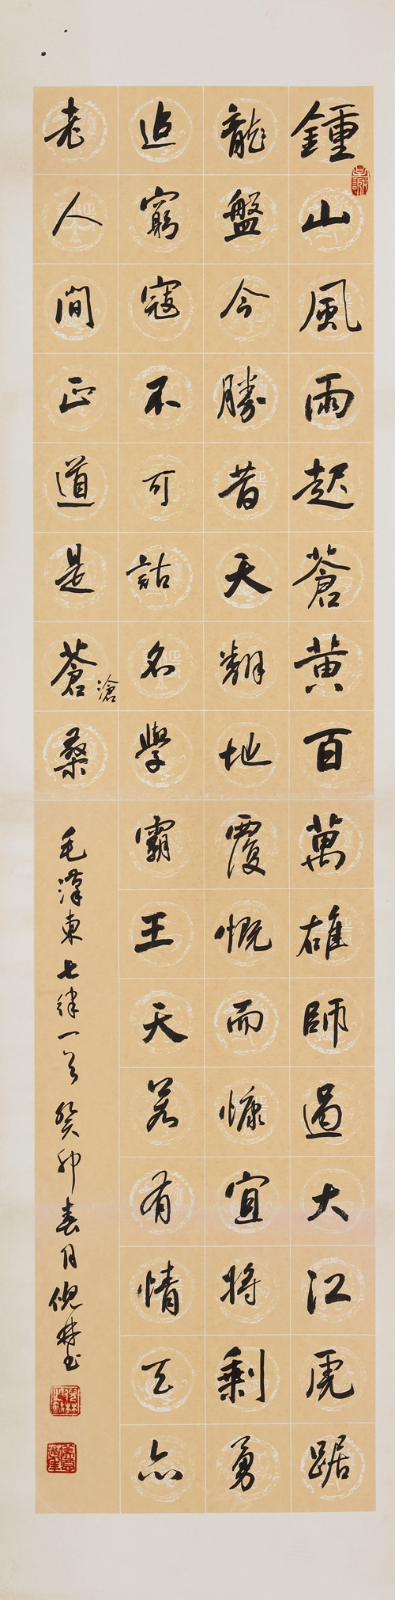 鍾山風雨起蒼黃百萬雄師過大江虎踞
龍盤今勝昔天翻地覆慨而慷宜將剩勇
追窮寇不可沽名學霸王天若有情天亦
老人間正道是蒼桑
滄
毛澤東七律一首癸卯春月倪林書